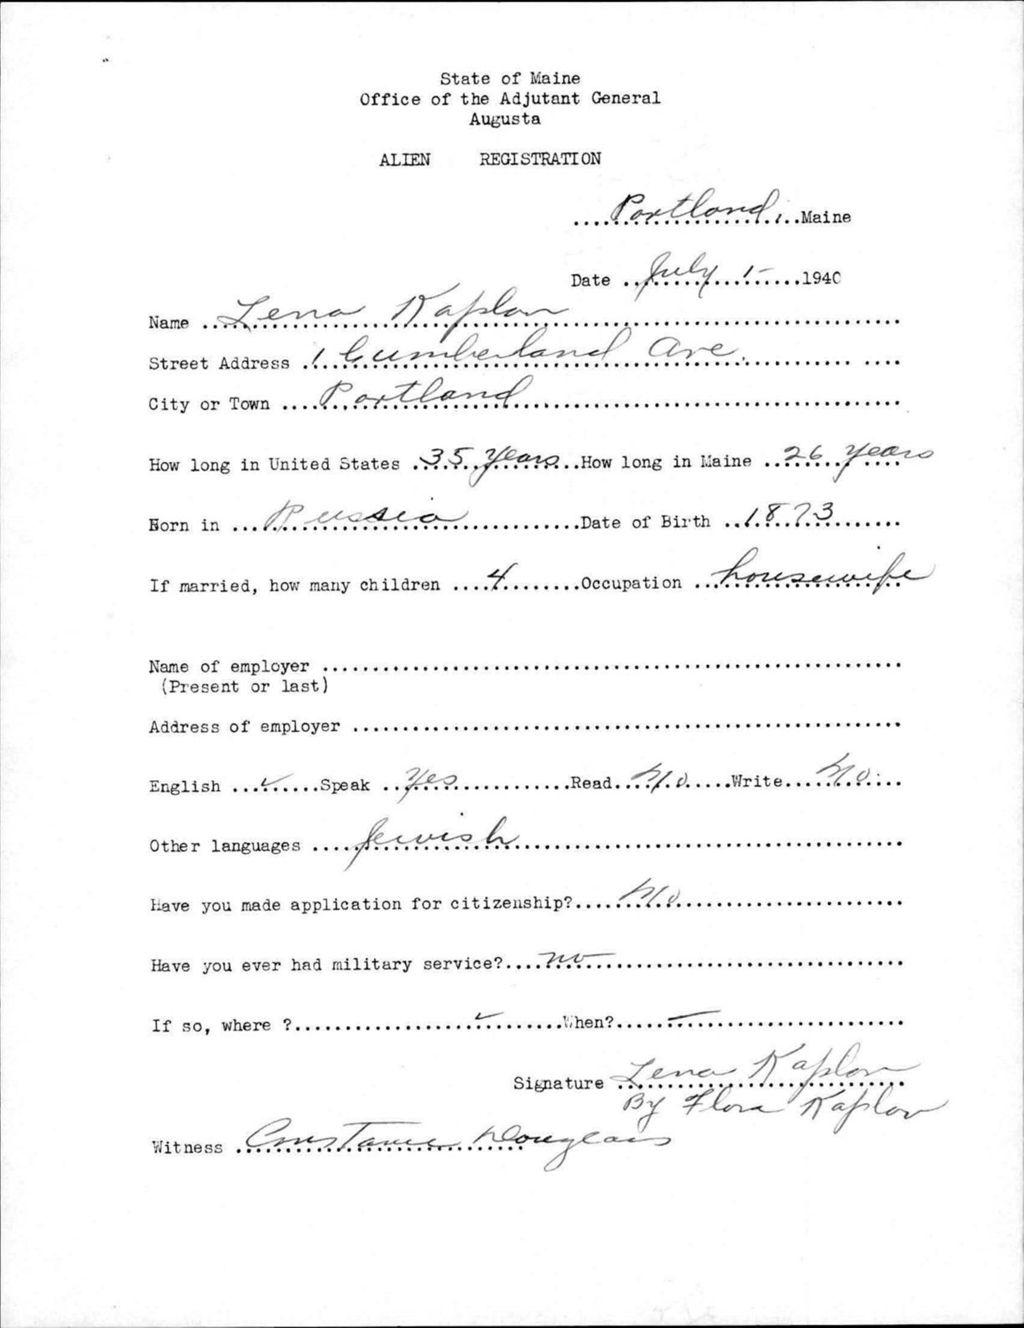 State of Maine
Office of the Adjutant General
Augusta
ALIEN REGISTRATION
....Portland,..Maine
Date ..July 1-....1940
Name ..Lena Kaplan
Street Address .1 Cumberland Ave.
City or Town ....Portland
How long in United States .35 years..How long in Maine ..26 years
Born in ...Russia............Date of Birth ..1873.......
If married, how many children ....4........Occupation ..housewife
Name of employer ..........................................................
(Present or last)
Address of employer .......................................................
English ...✓.....Speak ..Yes............Read...No.....Write...No...
Other languages ....Jewish
Have you made application for citizenship?....No
Have you ever had military service?....no
If so, where ?..................✓........When?.....—
Signature Lena Kaplan
By Flora Kaplan
Witness .Constance Douglass